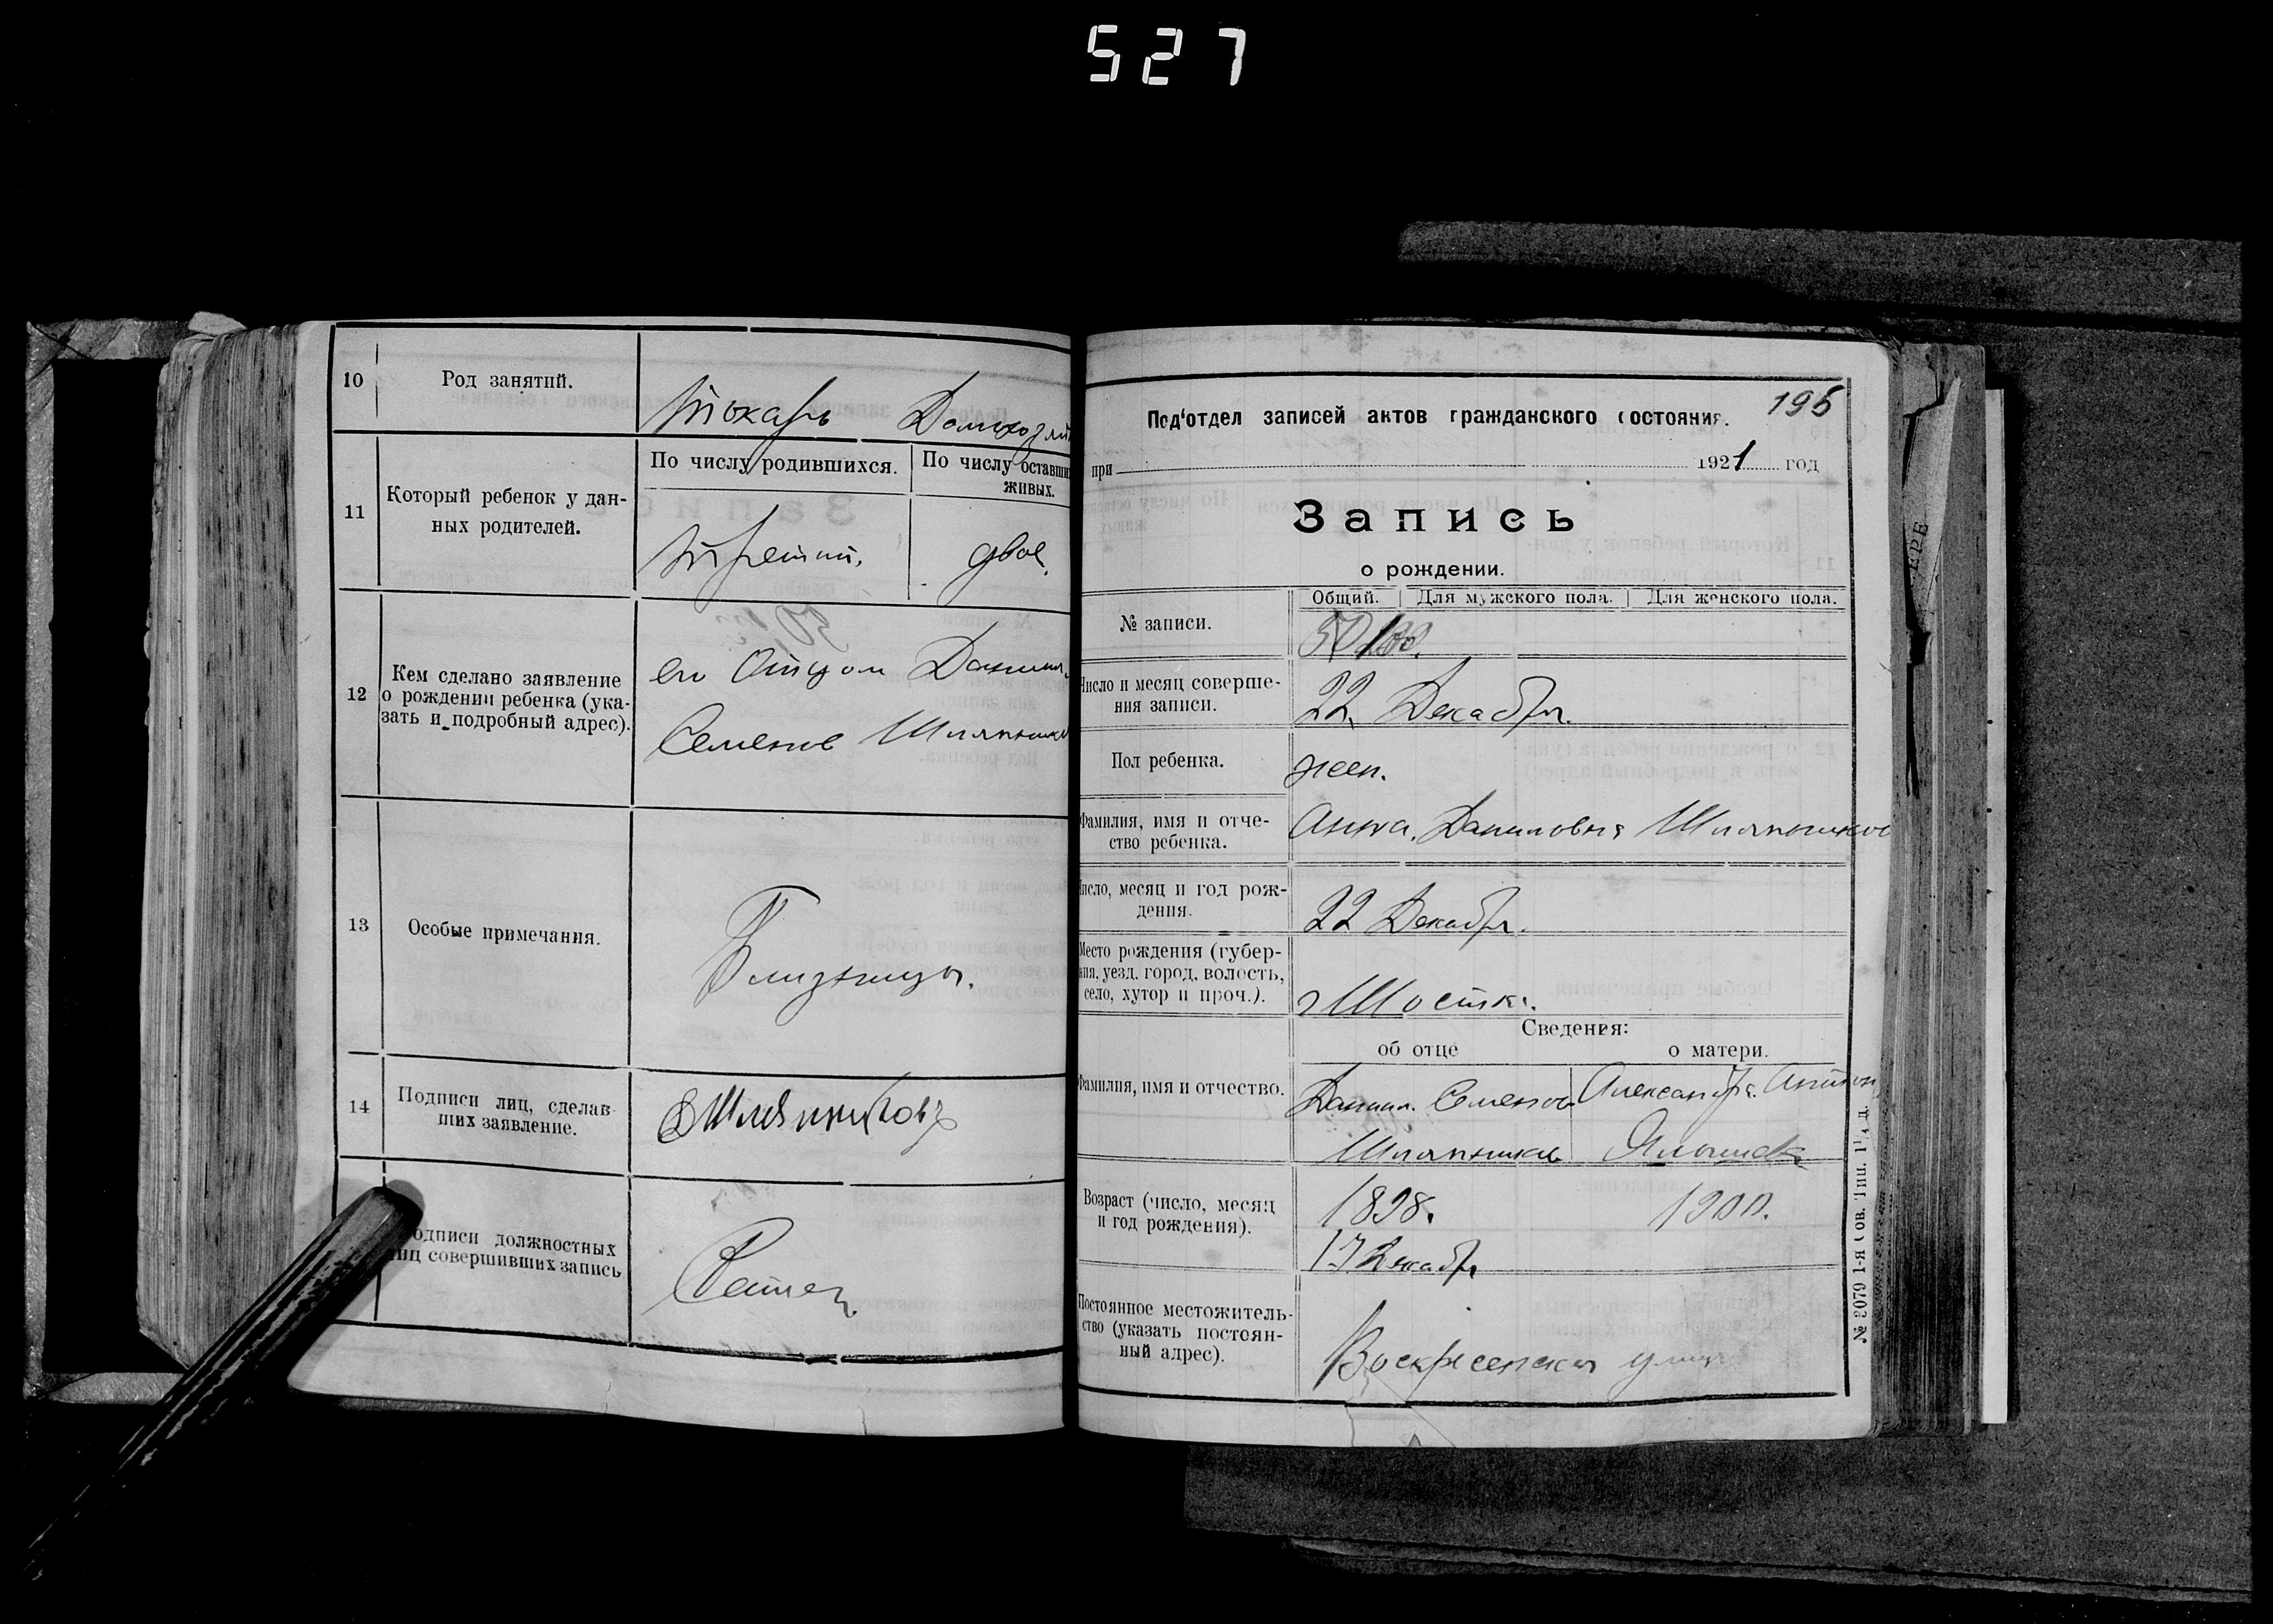 527
10
Род занятий.
Токарь Домохозяй
11
Который ребенок у дан-
ных родителей.
По числу родившихся.
По числу оставши
живых.
третий.
двое.
12
Кем сделано заявление
о рождении ребенка (ука-
зать и подробный адрес).
его Отцом Данiил.
Семенов Шляпников
13
Особые примечания.
Близницы.
14
Подписи лиц, сделав-
ших заявление.
ДШляпниковъ
одписи должностных
лиц совершивших запись
195
Под'отдел записей актов гражданского состояния.
при 1921 год
Запись
о рождении.
№ записи.
Общий. Для мужского пола. Для женского пола.
Число и месяц соверше-
ния записи.
22 Декабря.
Пол ребенка.
жен.
Фамилия, имя и отче-
ство ребенка.
Анна, Даниловна Шляпников
Число, месяц и год рож-
дения.
22 Декабря.
Место рождения (губер-
ния, уезд, город, волость,
село, хутор и проч.).
г Шостка.
Сведения:
об отце
о матери.
Фамилия, имя и отчество.
Даниил Семенов
Шляпников
Александра Антон
Возраст (число, месяц
и год рождения).
1898.
17 Декабр
1900.
Постоянное местожитель-
ство (указать постоян-
ный адрес).
Воскресенская улица
№ 2079 1-я Сов. Тип. 1¹/₄ д.